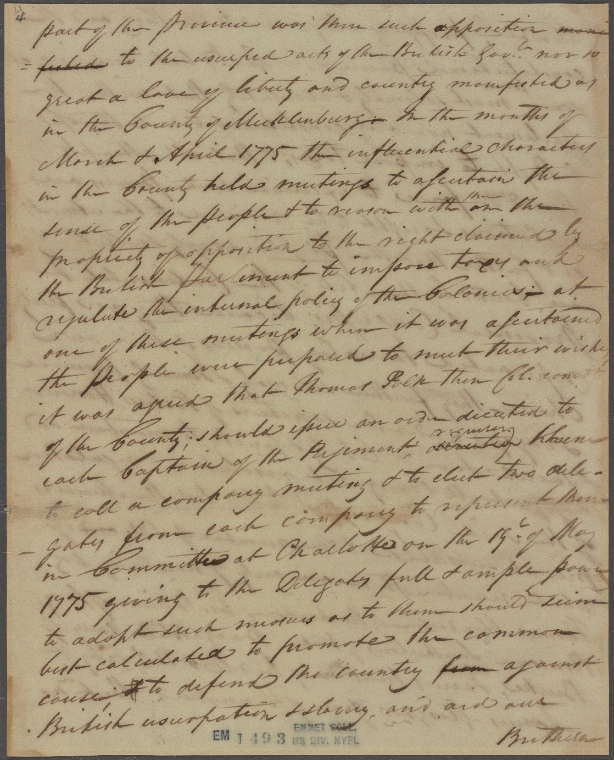 part of the Province was there such opposition mani
= fested to the usurped acts of the British Govt. nor so
great a love of liberty and country manifested as
in the County of Mecklenburg. In the months of
March & April 1775 the influential characters
in the County held meetings to ascertain the
sense of the people & to reason with them on the
propriety of opposition to the right claimed by
the British Parliment to impose taxes and
regulate the internal policy of the Colonies; at
one of these meetings when it was ascertained
the People were prepared to meet their wishes
it was agreed that Thomas Polk then Col. comdt
of the County; should issue an order directed to
each Captain of the Regiment, requiring
to call a company meeting & to elect two dele-
- gates from each company to represent them
in Committee at Charlotte on the 19th of May
1775 giving to the Delegates full & ample power
to adopt such measures as to them should seem
best calculated to promote the common
cause, & to defend the country from against
British usurpation & slavery, and aid our
Brethren
EM 1493
EMMET COLL.
MS DIV. NYPL